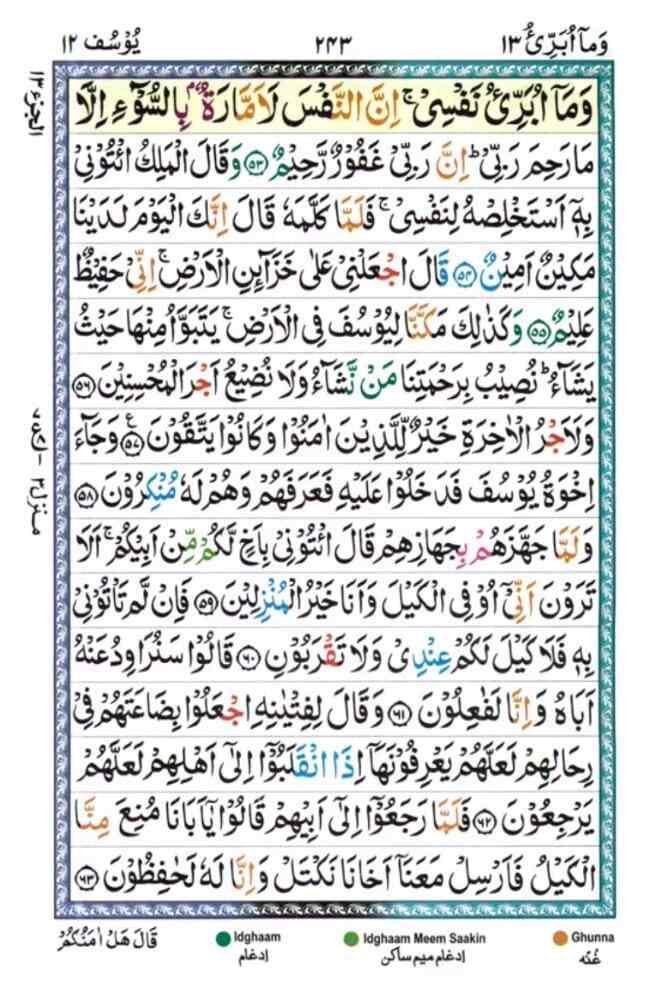 وَمَاۤ اُبَرِّئُ ١٣ ٢٤٣ يُوْسُف ١٢
الجزء ١٣
وَمَاۤ اُبَرِّئُ نَفْسِىْ ۚ اِنَّ النَّفْسَ لَاَمَّارَةٌۢ بِالسُّوْٓءِ اِلَّا
مَا رَحِمَ رَبِّىْ ؕ اِنَّ رَبِّىْ غَفُوْرٌ رَّحِيْمٌ ﴿٥٣﴾ وَقَالَ الْمَلِكُ ائْتُوْنِىْ
بِهٖۤ اَسْتَخْلِصْهُ لِنَفْسِىْ ۚ فَلَمَّا كَلَّمَهٗ قَالَ اِنَّكَ الْيَوْمَ لَدَيْنَا
مَكِيْنٌ اَمِيْنٌ ﴿٥٤﴾ قَالَ اجْعَلْنِىْ عَلٰى خَزَآئِنِ الْاَرْضِ ۚ اِنِّىْ حَفِيْظٌ
عَلِيْمٌ ﴿٥٥﴾ وَكَذٰلِكَ مَكَّنَّا لِيُوْسُفَ فِى الْاَرْضِ ۚ يَتَبَوَّاُ مِنْهَا حَيْثُ
يَشَآءُ ؕ نُصِيْبُ بِرَحْمَتِنَا مَنْ نَّشَآءُ وَلَا نُضِيْعُ اَجْرَ الْمُحْسِنِيْنَ ﴿٥٦﴾
وَلَاَجْرُ الْاٰخِرَةِ خَيْرٌ لِّلَّذِيْنَ اٰمَنُوْا وَكَانُوْا يَتَّقُوْنَ ﴿٥٧﴾ ع وَجَآءَ
اِخْوَةُ يُوْسُفَ فَدَخَلُوْا عَلَيْهِ فَعَرَفَهُمْ وَهُمْ لَهٗ مُنْكِرُوْنَ ﴿٥٨﴾
وَلَمَّا جَهَّزَهُمْ بِجَهَازِهِمْ قَالَ ائْتُوْنِىْ بِاَخٍ لَّكُمْ مِّنْ اَبِيْكُمْ ۚ اَلَا
تَرَوْنَ اَنِّىْۤ اُوْفِى الْكَيْلَ وَاَنَا خَيْرُ الْمُنْزِلِيْنَ ﴿٥٩﴾ فَاِنْ لَّمْ تَاْتُوْنِىْ
بِهٖ فَلَا كَيْلَ لَكُمْ عِنْدِىْ وَلَا تَقْرَبُوْنِ ﴿٦٠﴾ قَالُوْا سَنُرَاوِدُ عَنْهُ
اَبَاهُ وَاِنَّا لَفٰعِلُوْنَ ﴿٦١﴾ وَقَالَ لِفِتْيٰنِهِ اجْعَلُوْا بِضَاعَتَهُمْ فِىْ
رِحَالِهِمْ لَعَلَّهُمْ يَعْرِفُوْنَهَاۤ اِذَا انْقَلَبُوْۤا اِلٰٓى اَهْلِهِمْ لَعَلَّهُمْ
يَرْجِعُوْنَ ﴿٦٢﴾ فَلَمَّا رَجَعُوْۤا اِلٰٓى اَبِيْهِمْ قَالُوْا يٰۤاَبَانَا مُنِعَ مِنَّا
الْكَيْلُ فَاَرْسِلْ مَعَنَاۤ اَخَانَا نَكْتَلْ وَاِنَّا لَهٗ لَحٰفِظُوْنَ ﴿٦٣﴾
Ghunna Idghaam Meem Saakin Idghaam قَالَ هَلْ اٰمَنُكُمْ
غُنّه ادغام میم ساکن ادغام